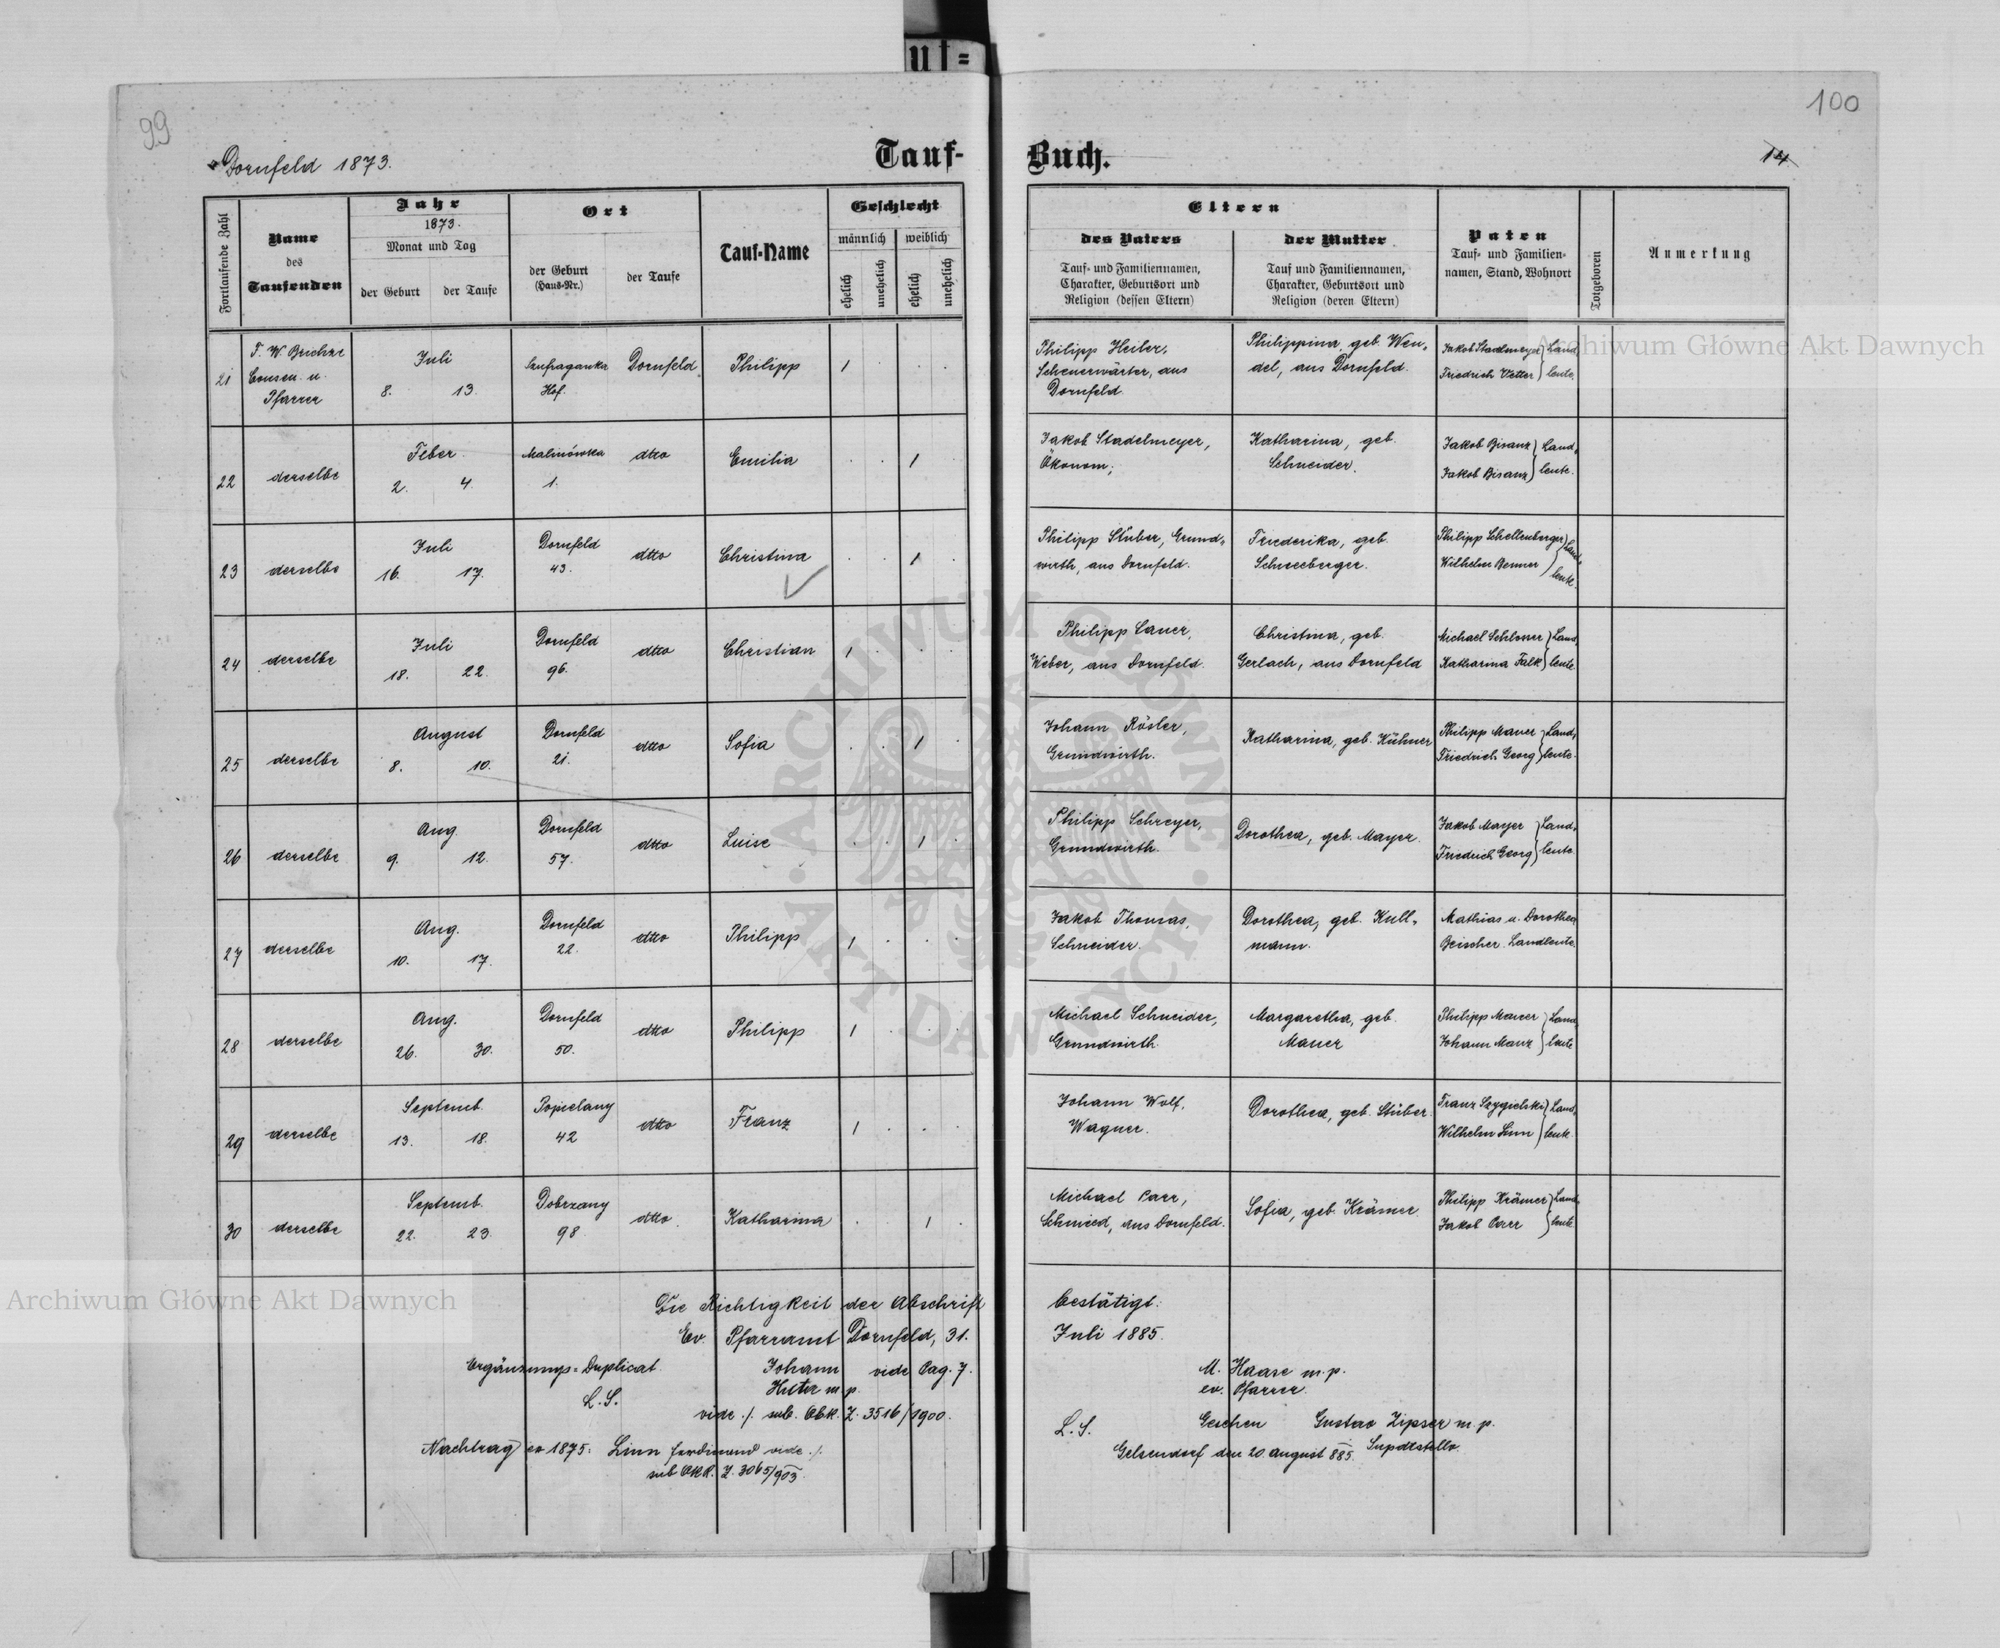 uf=
99
100
Dornfeld 1873.
Tauf-
Buch.
14
Fortlaufende Zahl
Name
des
Taufenden
Jahr
1873.
Monat und Tag
der Geburt
der Taufe
Ort
der Geburt
(Haus-Nr.)
der Taufe
Tauf-Name
Geschlecht
männlich
weiblich
ehelich
unehelich
ehelich
unehelich
Eltern
des Vaters
Tauf- und Familiennamen,
Charakter, Geburtsort und
Religion (dessen Eltern)
der Mutter
Tauf und Familiennamen,
Charakter, Geburtsort und
Religion (deren Eltern)
Paten
Tauf- und Familien-
namen, Stand, Wohnort
Totgeboren
Anmerkung
21 Consen. u. Pfarrer Juli 8. 13. Hof. Dornfeld Philipp 1 . . .
Philipp Heiler, Scheuerwärter, aus Dornfeld. Philippina, geb. Wen-del, aus Dornfeld. Jakob Stadelmeyer Friedrich Vetter Land-leute.
22 derselbe Feber. 2. 4. Malinówka 1. dtto Emilia . . 1 .
Jakob Stadelmeyer, Ökonom; Katharina, geb. Schneider. Jakob Bisanz Jakob Bisanz Land-leute.
23 derselbe Juli 16. 17. Dornfeld 43. dtto Christina . . 1 .
Philipp Stüber, Grund-wirth, aus Dornfeld. Friederika, geb. Schneeberger. Philipp Schellenberger Wilhelm Benner Land-leute.
24 derselbe Juli 18. 22. Dornfeld 96. dtto Christian 1 . . .
Philipp Lauer, Weber, aus Dornfeld. Christina, geb. Gerlach, aus Dornfeld Michael Schlosser Katharina Falk Land-leute
25 derselbe August 8. 10. Dornfeld 21. dtto Sofia . . 1 .
Johann Rösler, Grundwirth. Katharina, geb. Kühner Philipp Mauer Friedrich Georg Land-leute.
26 derselbe Aug. 9. 12. Dornfeld 57. dtto Luise . . 1 .
Philipp Schreyer, Grundwirth. Dorothea, geb. Mayer. Jakob Mayer Friedrich Georg Land-leute.
27 derselbe Aug. 10. 17. Dornfeld 22. dtto Philipp 1 . . .
Jakob Thomas, Schneider. Dorothea, geb. Kull-mann. Mathias u. Dorothea Beischer Landleute
28 derselbe Aug. 26. 30. Dornfeld 50. dtto Philipp 1 . . .
Michael Schneider, Grundwirth. Margaretha, geb. Mauer Philipp Mauer Johann Manz Land-leute
29 derselbe Septemb. 13. 18. Popielany 42 dtto Franz 1 . . .
Johann Wolf, Wagner. Dorothea, geb. Stüber. Franz Szygielski Wilhelm Linn Land-leute.
30 derselbe Septemb. 22. 23. Dobrzany 98 dtto. Katharina . . 1 .
Michael Parr, Schmied, aus Dornfeld. Sofia, geb. Krämer. Philipp Krämer Jakob Parr Land-leute
Die Richtigkeit der Abschrift bestätigt:
Ev. Pfarramt Dornfeld, 31. Juli 1885.
Ergänzungs-Duplicat Johann vide Pag. 7.
m. p.
L. S.
vide ./. sub. Obk. Z. 3516/1900.
Nachtrag ex 1875: Linn Ferdinand vide ./.
sub OKR. Z. 3065/903
M. Haase m. p.
ev. Pfarrer.
L. S.
Gesehen Gustav Zipser m. p.
Supdstellv.
Gelsendorf den 20. August 885.
Archiwum Główne Akt Dawnych
Archiwum Główne Akt Dawnych
ARCHIWUM GŁÓWNE · AKT DAWNYCH ·